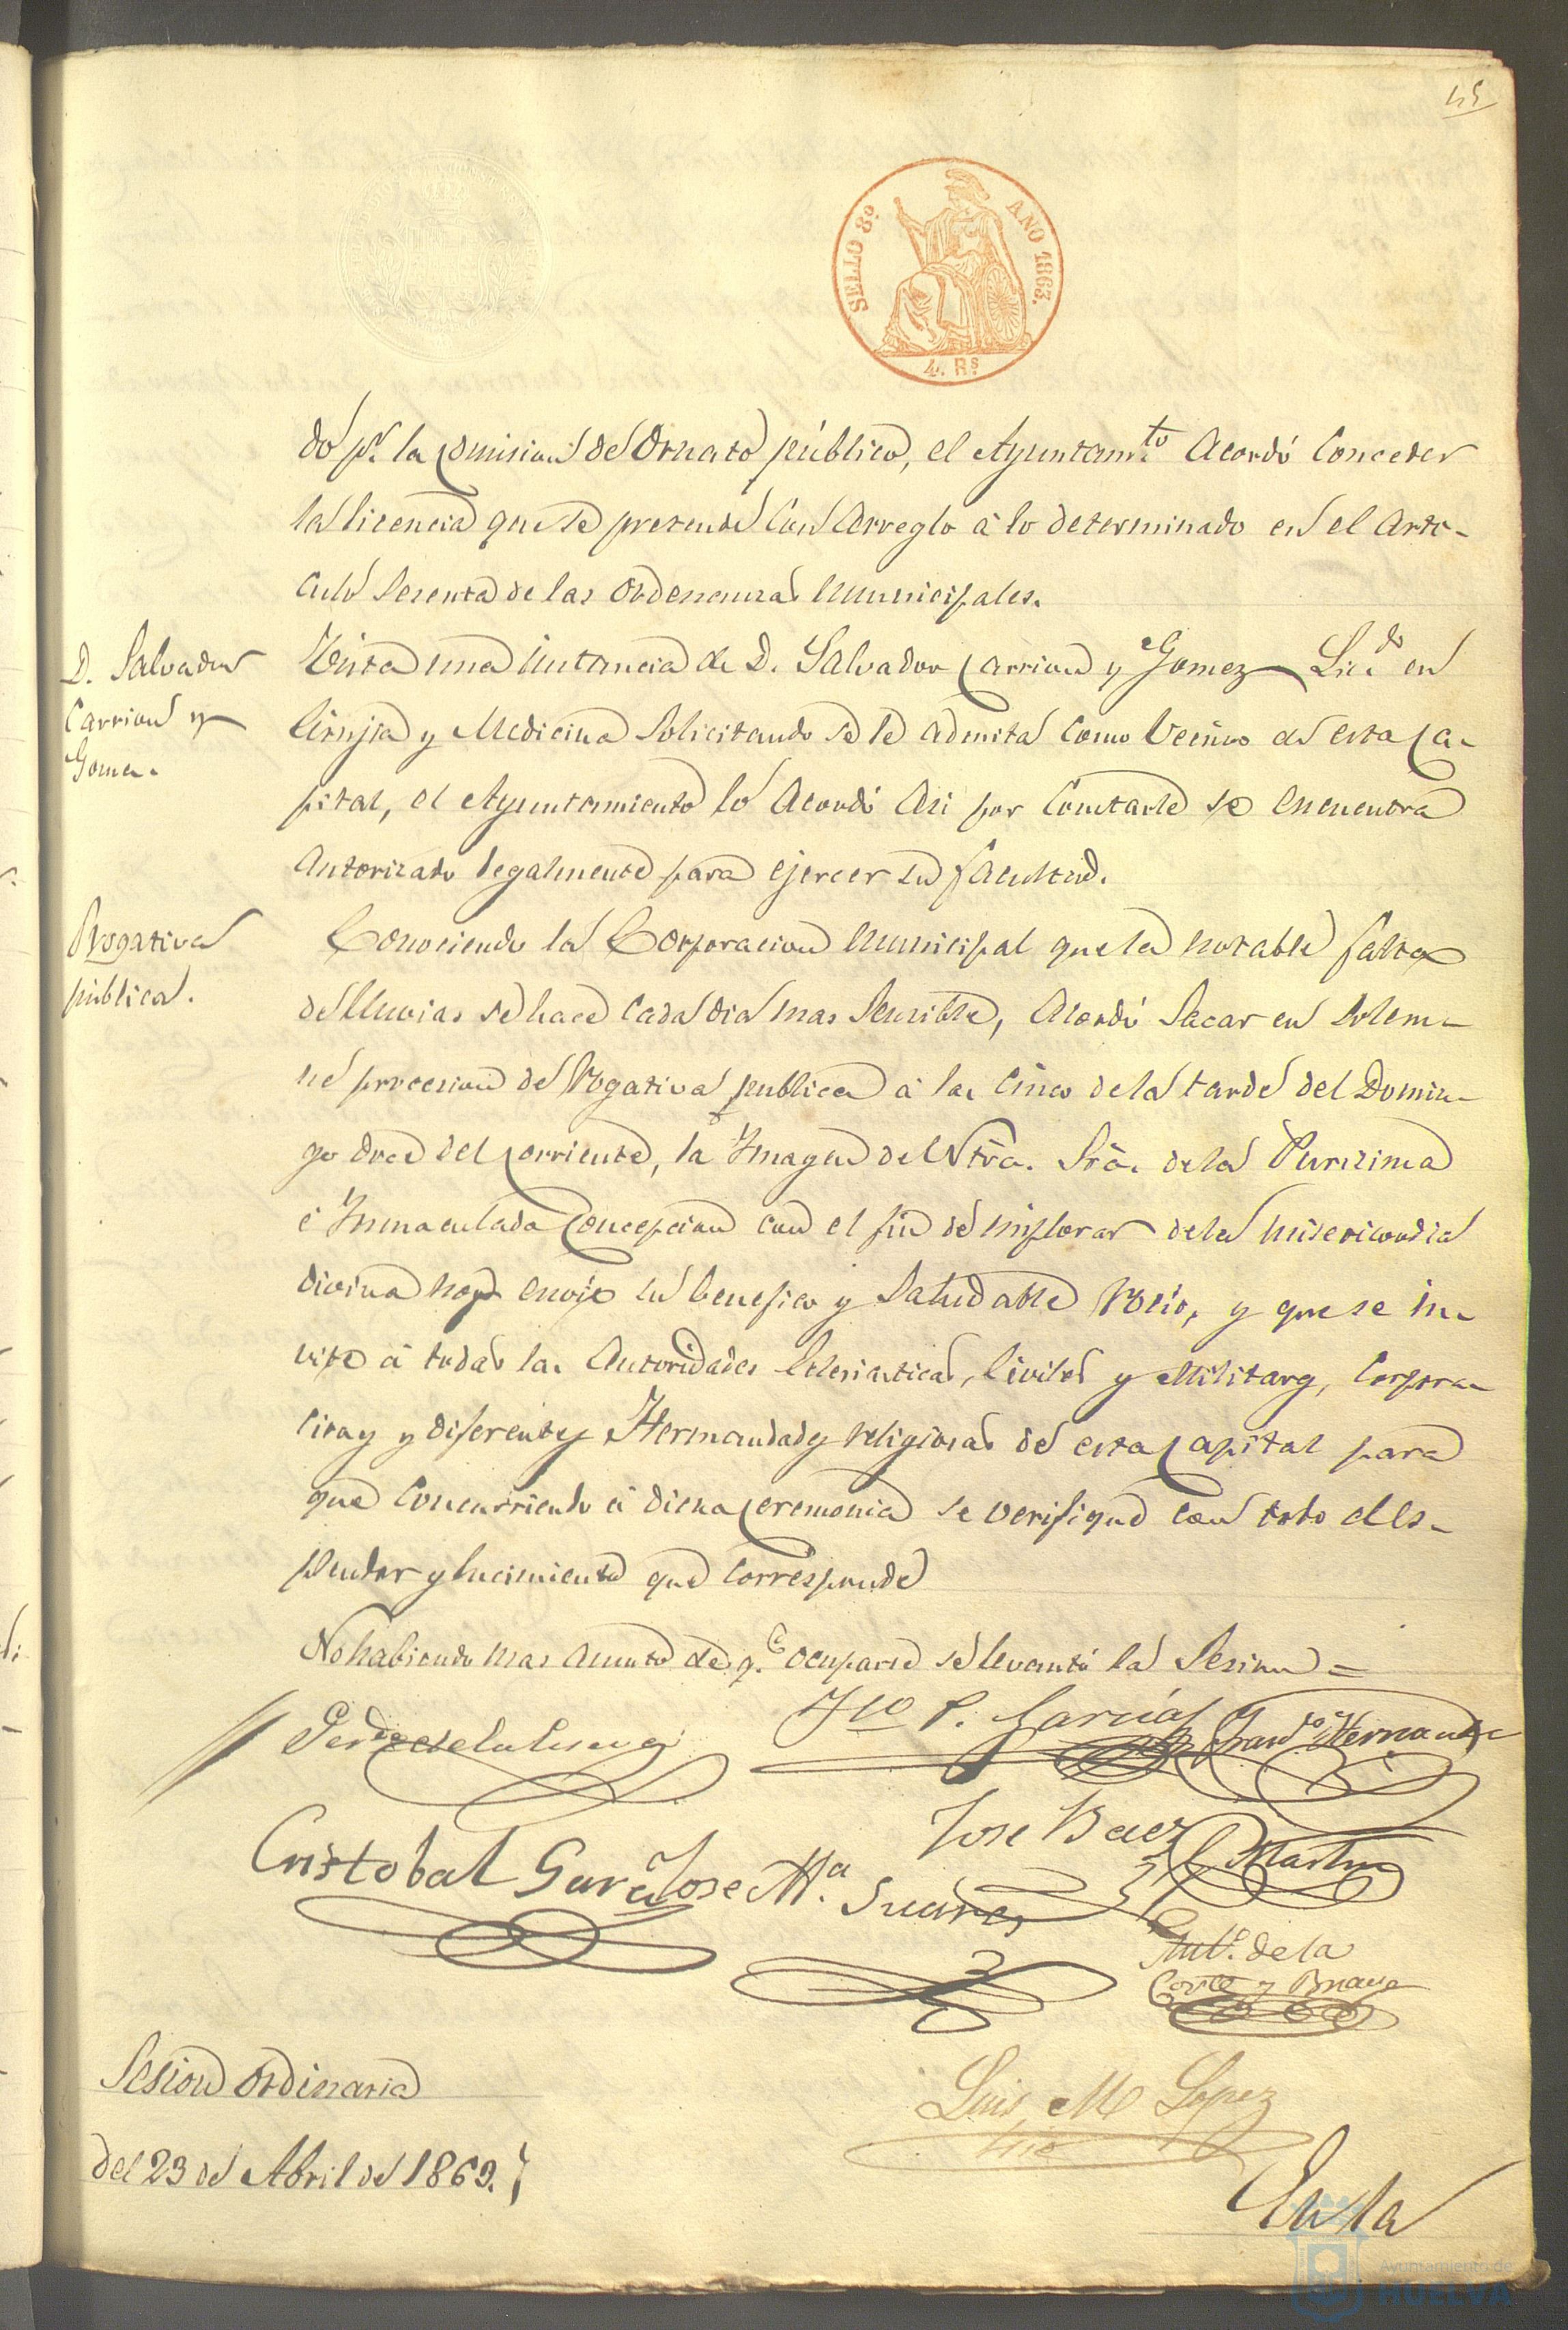 45
SELLO 8º AÑO 1863.
4. Rs
do pr. la Comision de Ornato público, el Ayuntamto. Acordó Conceder
la licencia que se pretende Con Arreglo á lo determinado en el Arti-
culo Sesenta de las Ordenanzas Municipales.
D. Salvador
Carrion y
Gomez.
Vista una instancia de D. Salvador Carrion y Gomez Licdo. en
Cirujia y Medicina Solicitando se le admita Como Vecino de esta Ca-
pital, el Ayuntamiento lo Acordó Asi por Constarle se encuentra
Autorizado legalmente para ejercer su facultad.
Rogativa
pública.
Conociendo la Corporacion Municipal que la notable falta
de lluvias se hace Cada dia mas Sensible, Acordó Sacar en solem-
ne procesion de Rogativa publica á las Cinco de la tarde del Domin-
go doce del Corriente, la Imagen de Ntra. Sra. de la Purisima
é Inmaculada Concepcion con el fin de implorar de la misericordia
divina nos envie su benefico y Saludable Rocío, y que se in-
vite á todas las Autoridades Eclesiasticas, Civiles y Militares, Corpora-
ciones y diferentes Hermandades religiosas de esta Capital para
que Concurriendo á dicha Ceremonia se verifique con todo el es-
plendor y lucimiento que Corresponde
No habiendo mas asunto de qe. ocuparse se levantó la Sesion =
P. Garcia
Hernandez
Jose Baez
Martin
Cristobal Garcia
Jose Ma. Suarez
Anto. de la
Corte y
Luis M Lopez
Sesion Ordinaria
del 23 de Abril de 1863.
En la
Ayuntamiento de
HUELVA